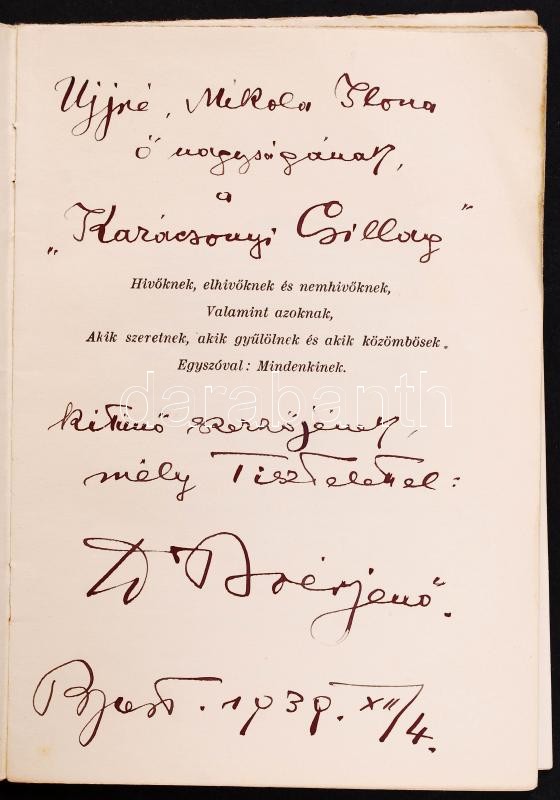 Ujjné, Mikola Ilona
ő nagyságának,
a
„Karácsonyi Csillag”
Hivőknek, elhivőknek és nemhivőknek,
Valamint azoknak,
Akik szeretnek, akik gyűlölnek és akik közömbösek.
Egyszóval: Mindenkinek.
darabanth
kitünő szerzőjének,
mély Tisztelettel:
Dr Boérjenő.
Bpest. 1939. XII/4.